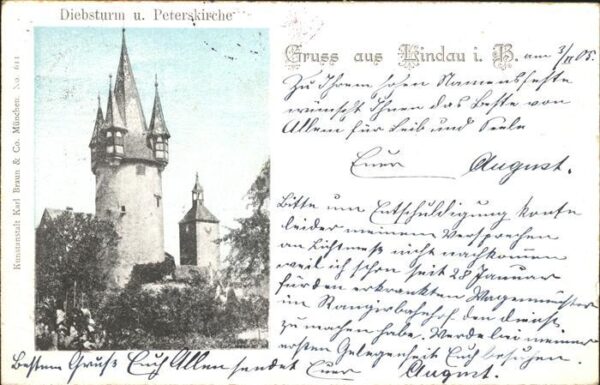 Diebsturm u. Peterskirche
Gruss aus Lindau i. B. am 3/II 05.
Zu Ihrem hohen Namensfeste
wünscht Ihnen das Beste von
Allem für Leib und Seele
Euer August.
Bitte um Entschuldigung konte
leider meinem Versprechen
an Lichtmeß nicht nachkommen
weil ich schon seit 28 Januar
für den erkrankten Wagenmeister
im Rangirbahnhof den dienst
zu machen habe. Werde bei meiner
ersten Gelegenheit Euch besuchen.
Besten Gruß Euch Allen sendet Euer August.
Kunstanstalt Karl Braun & Co. München. No. 611